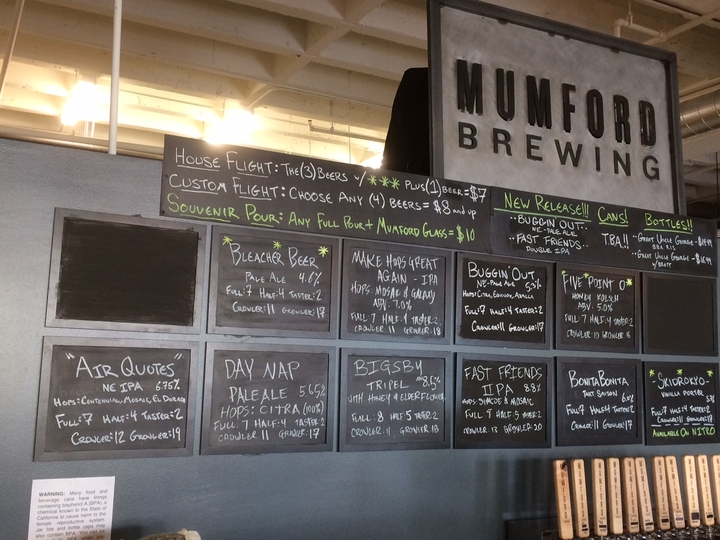 MUMFORD
BREWING
HOUSE FLIGHT: THE (3) BEERS w/ *** PLUS (1) BEER = $7
CUSTOM FLIGHT: CHOOSE ANY (4) BEERS = $8 and up
SOUVENIR POUR: ANY FULL POUR + MUMFORD GLASS = $10
NEW RELEASE!!!
BUGGIN' OUT
NE-PALE ALE
FAST FRIENDS
DOUBLE IPA
CANS!
T.B.A.!!
BOTTLES!!
GREAT UNCLE GEORGE
GREAT UNCLE GEORGE
BLEACHER BEER
PALE ALE 4.6%
FULL: 7 HALF: 4 TASTER: 2
CROWLER: 11 GROWLER: 17
MAKE HOPS GREAT
AGAIN - IPA
HOPS: MOSAIC & GALAXY
ABV: 7.0%
FULL: 7 HALF: 4 TASTER: 2
CROWLER: 11 GROWLER: 18
BUGGIN' OUT
NE-PALE ALE 5.5%
HOPS: CITRA, EQUINOX, AZACCA
FULL: 7 HALF: 4 TASTER: 2
CROWLER: 11 GROWLER: 17
FIVE POINT O
HONEY KOLSCH
ABV: 5.0%
FULL: 7 HALF: 4 TASTER: 2
CROWLER: 10 GROWLER: 16
"AIR QUOTES"
NE IPA 6.75%
HOPS: CENTENNIAL, MOSAIC, EL DORADO
FULL: 7 HALF: 4 TASTER: 2
CROWLER: 12 GROWLER: 19
DAY NAP
PALE ALE 5.65%
HOPS: CITRA (100%)
FULL: 7 HALF: 4 TASTER: 2
CROWLER 11 GROWLER: 17
BIGSBY
TRIPEL ABV 8.6%
WITH HONEY & ELDERFLOWER
FULL: 8 HALF 5 TASTER: 2
CROWLER: 11 GROWLER: 18
FAST FRIENDS
IIPA 8.8%
HOPS: SIMCOE & MOSAIC
FULL: 9 HALF: 5 TASTER: 2
CROWLER: 13 GROWLER: 20
BONITA BONITA
TART SAISON
FULL: 7 HALF: 4 TASTER: 2
CROWLER: 11 GROWLER: 17
- SKIDROKYO -
VANILLA PORTER
FULL: 7 HALF: 4 TASTER: 2
CROWLER: 11 GROWLER: 17
AVAILABLE ON NITRO
WARNING: Many food and
beverage cans have linings
containing bisphenol A (BPA), a
chemical known to the State of
California to cause harm to the
female reproductive system.
Jar lids and bottle caps may
also contain BPA. You can be